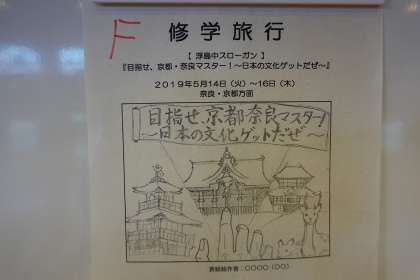 F
修学旅行
【 浮島中スローガン 】
『目指せ、京都・奈良マスター！～日本の文化ゲットだぜ～』
2019年5月14日（火）～16日（木）
奈良・京都方面
目指せ、京都奈良マスター！
～日本の文化ゲットだぜ～
表紙絵作者：〇〇〇〇（〇〇）